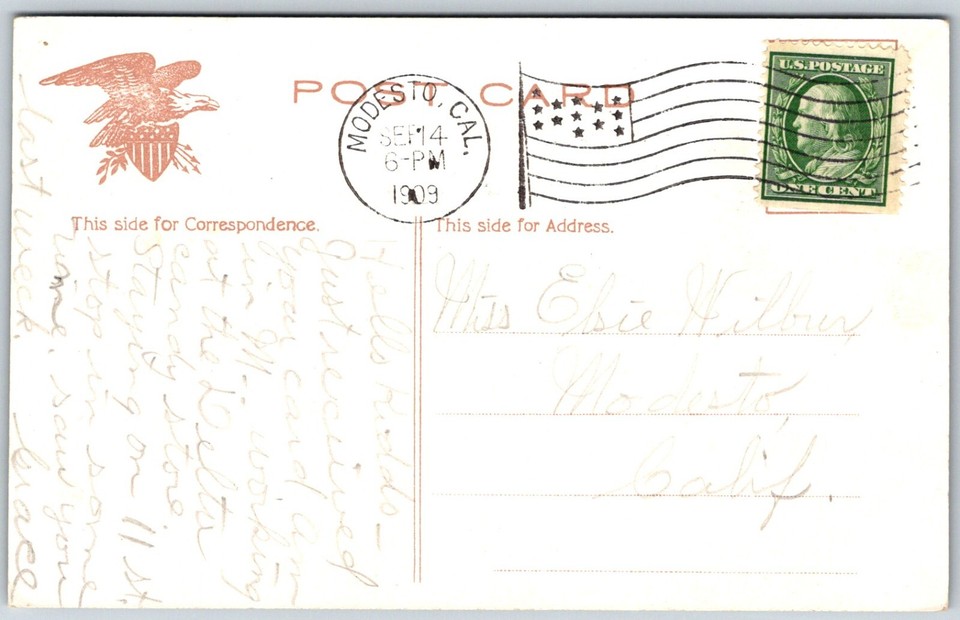 POST CARD
MODESTO, CAL.
SEP 14
6-PM
1909
U.S. POSTAGE
ONE CENT
This side for Correspondence.
This side for Address.
Hello Kiddo-
Just received
your card. Am
in M- working
at the Delta
candy store.
Staying on 11 st.
stop in some
time. saw you
last week. Grace
Miss Elsie Wilbur
Modesto,
Calif.